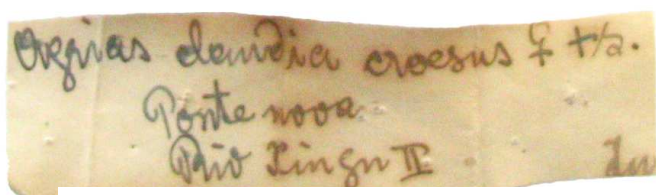 Agrias claudia croesus ♀ +/2.
Ponte nova
Rio Xingu II